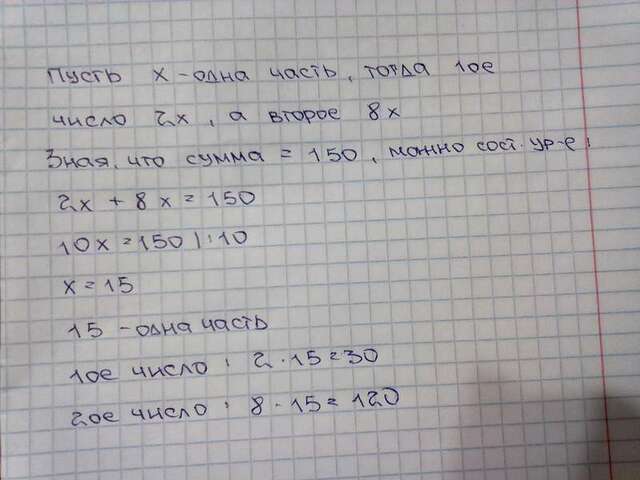 Пусть x - одна часть, тогда 1ое
число 2x, а второе 8x
Зная, что сумма = 150, можно сост. ур-е:
2x + 8x = 150
10x = 150 | : 10
x = 15
15 - одна часть
1ое число: 2 · 15 = 30
2ое число: 8 · 15 = 120